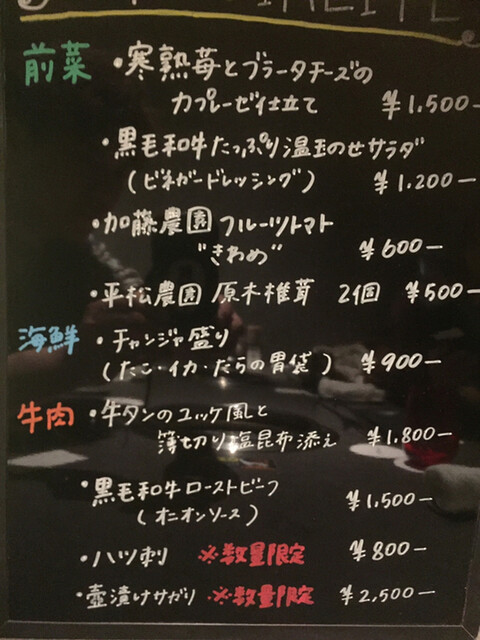 前菜 ・寒熟苺とブラータチーズの
カプレーゼ仕立て ¥1,500-
・黒毛和牛たっぷり温玉のせサラダ
(ビネガードレッシング) ¥1,200-
・加藤農園フルーツトマト
"きわめ" ¥600-
・平松農園 原木椎茸 2個 ¥500-
海鮮 ・チャンジャ盛り
(たこ・イカ・たらの胃袋) ¥900-
牛肉 ・牛タンのユッケ風と
薄切り塩昆布添え ¥1,800-
・黒毛和牛ローストビーフ
(オニオンソース) ¥1,500-
・ハツ刺 ※数量限定 ¥800-
・壺漬けサガリ ※数量限定 ¥2,500-